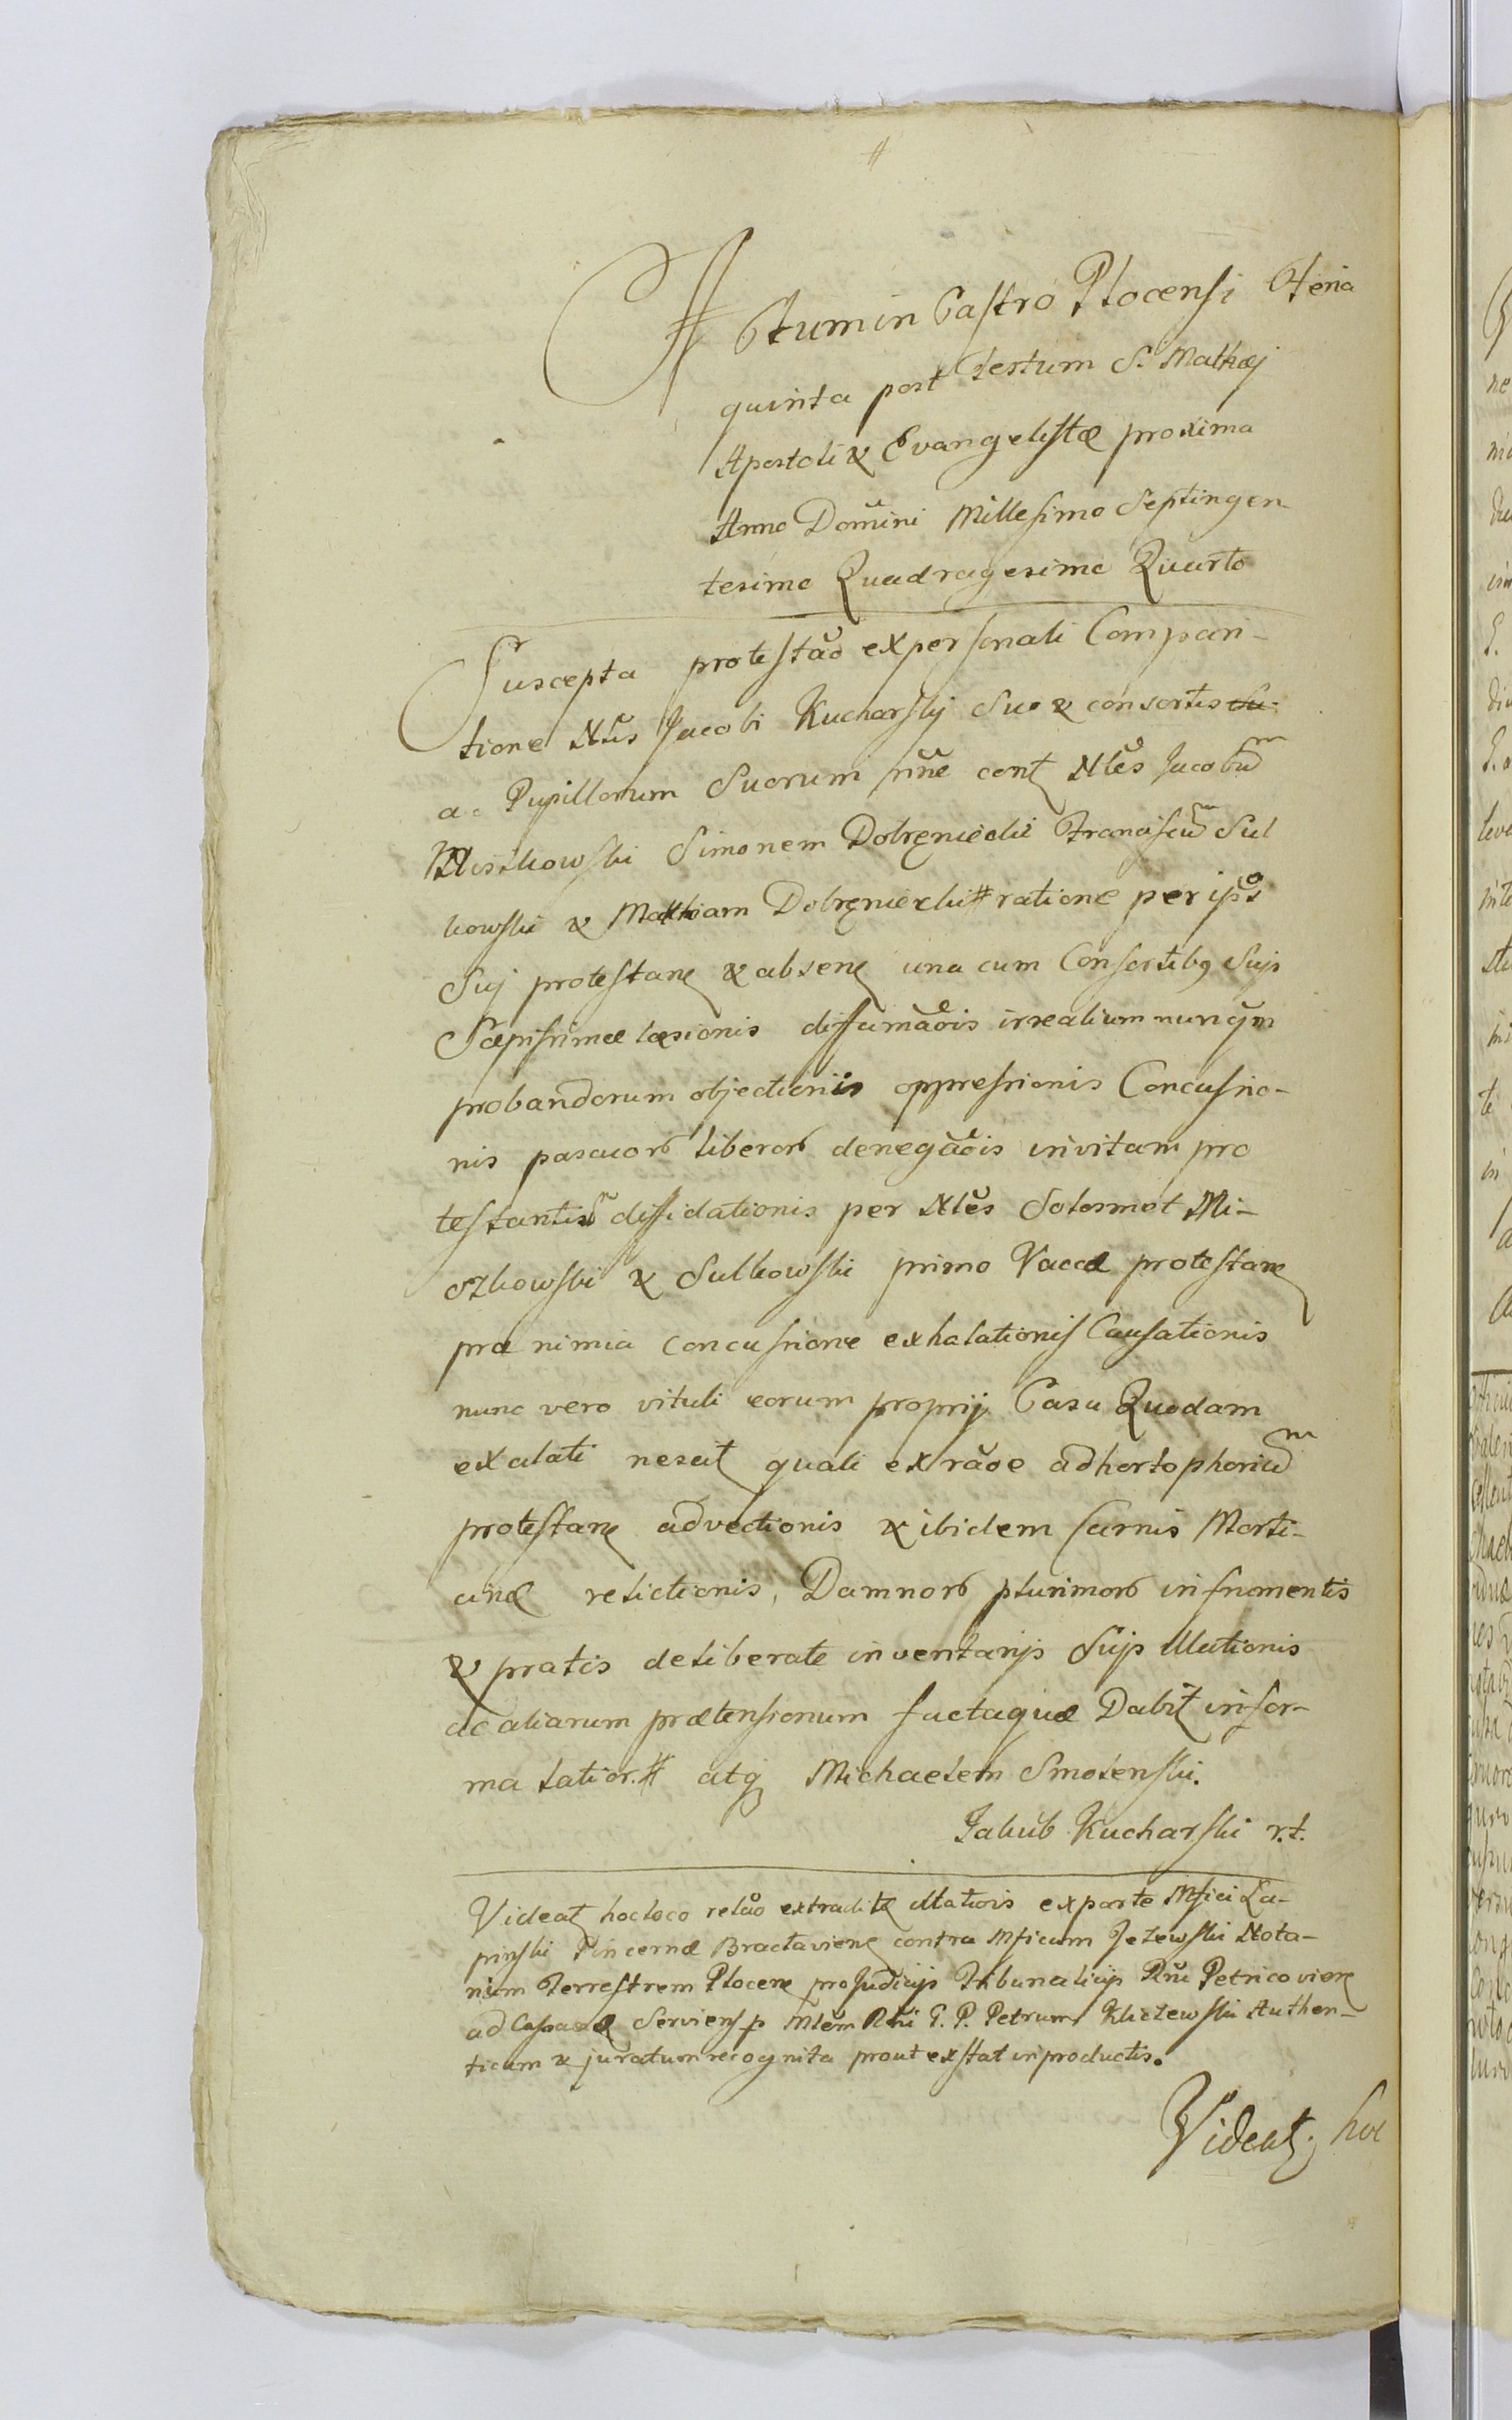 Actum in Castro Plocensi Feria
quinta post Festum S. Mathæj
Apostoli & Evangelistæ proxima
Anno Domini Millesimo Septingen-
tesimo Quadragesimo Quarto
Suscepta protestão ex personali Compari-
tione Nlis Jacobi Kucharskj Suo & consortis
ac Pupillorum Suorum nne cont Nles Jacobum
Miszkowski Simonem Dobręniecki Franciscum Sul
kowski & Mathiam Dobręniecki # ratione per ipsos
Suj protestan & absen una cum Consortibg Sujs
Sæpissimæ læsionis diffamãois irrealium nunqm
probandorum objectionis oppressionis Concussio-
nis pascuor liberor denegãois in vitam pro
testantis diffidationis per Nles Solosmet Mi-
szkowski & Sulkowski primo Vaccæ protestan
præ nimia concussione exhalationis Causationis
nunc vero vituli eorum proprij Casu Quodam
exalati nescit quali ex rãoe ad hortophorium
protestan advectionis & ibidem Carnis Morti-
cinæ relictionis, Damnor plurimor in frumentis
& pratis deliberate inventarijs Sujs illationis
ac aliarum prætensionum factaquæ Dabit in for-
ma latior. # atq Michaelem Smolenski.
Jakub Kucharski r.t.
Videat hocloco relão extraditæ illatiois ex parte Mfici La-
pinski Pincernæ Bractavien contra Mficum Jezewski Nota-
rium Terrestrem Plocen pro Judicijs Tribunalicijs Petricovien
ad Serviens p Mlem Rni G. P. Petrum Klictewski Authen-
ticum & juratum recognita prout exstat in productis.
Videat hoc